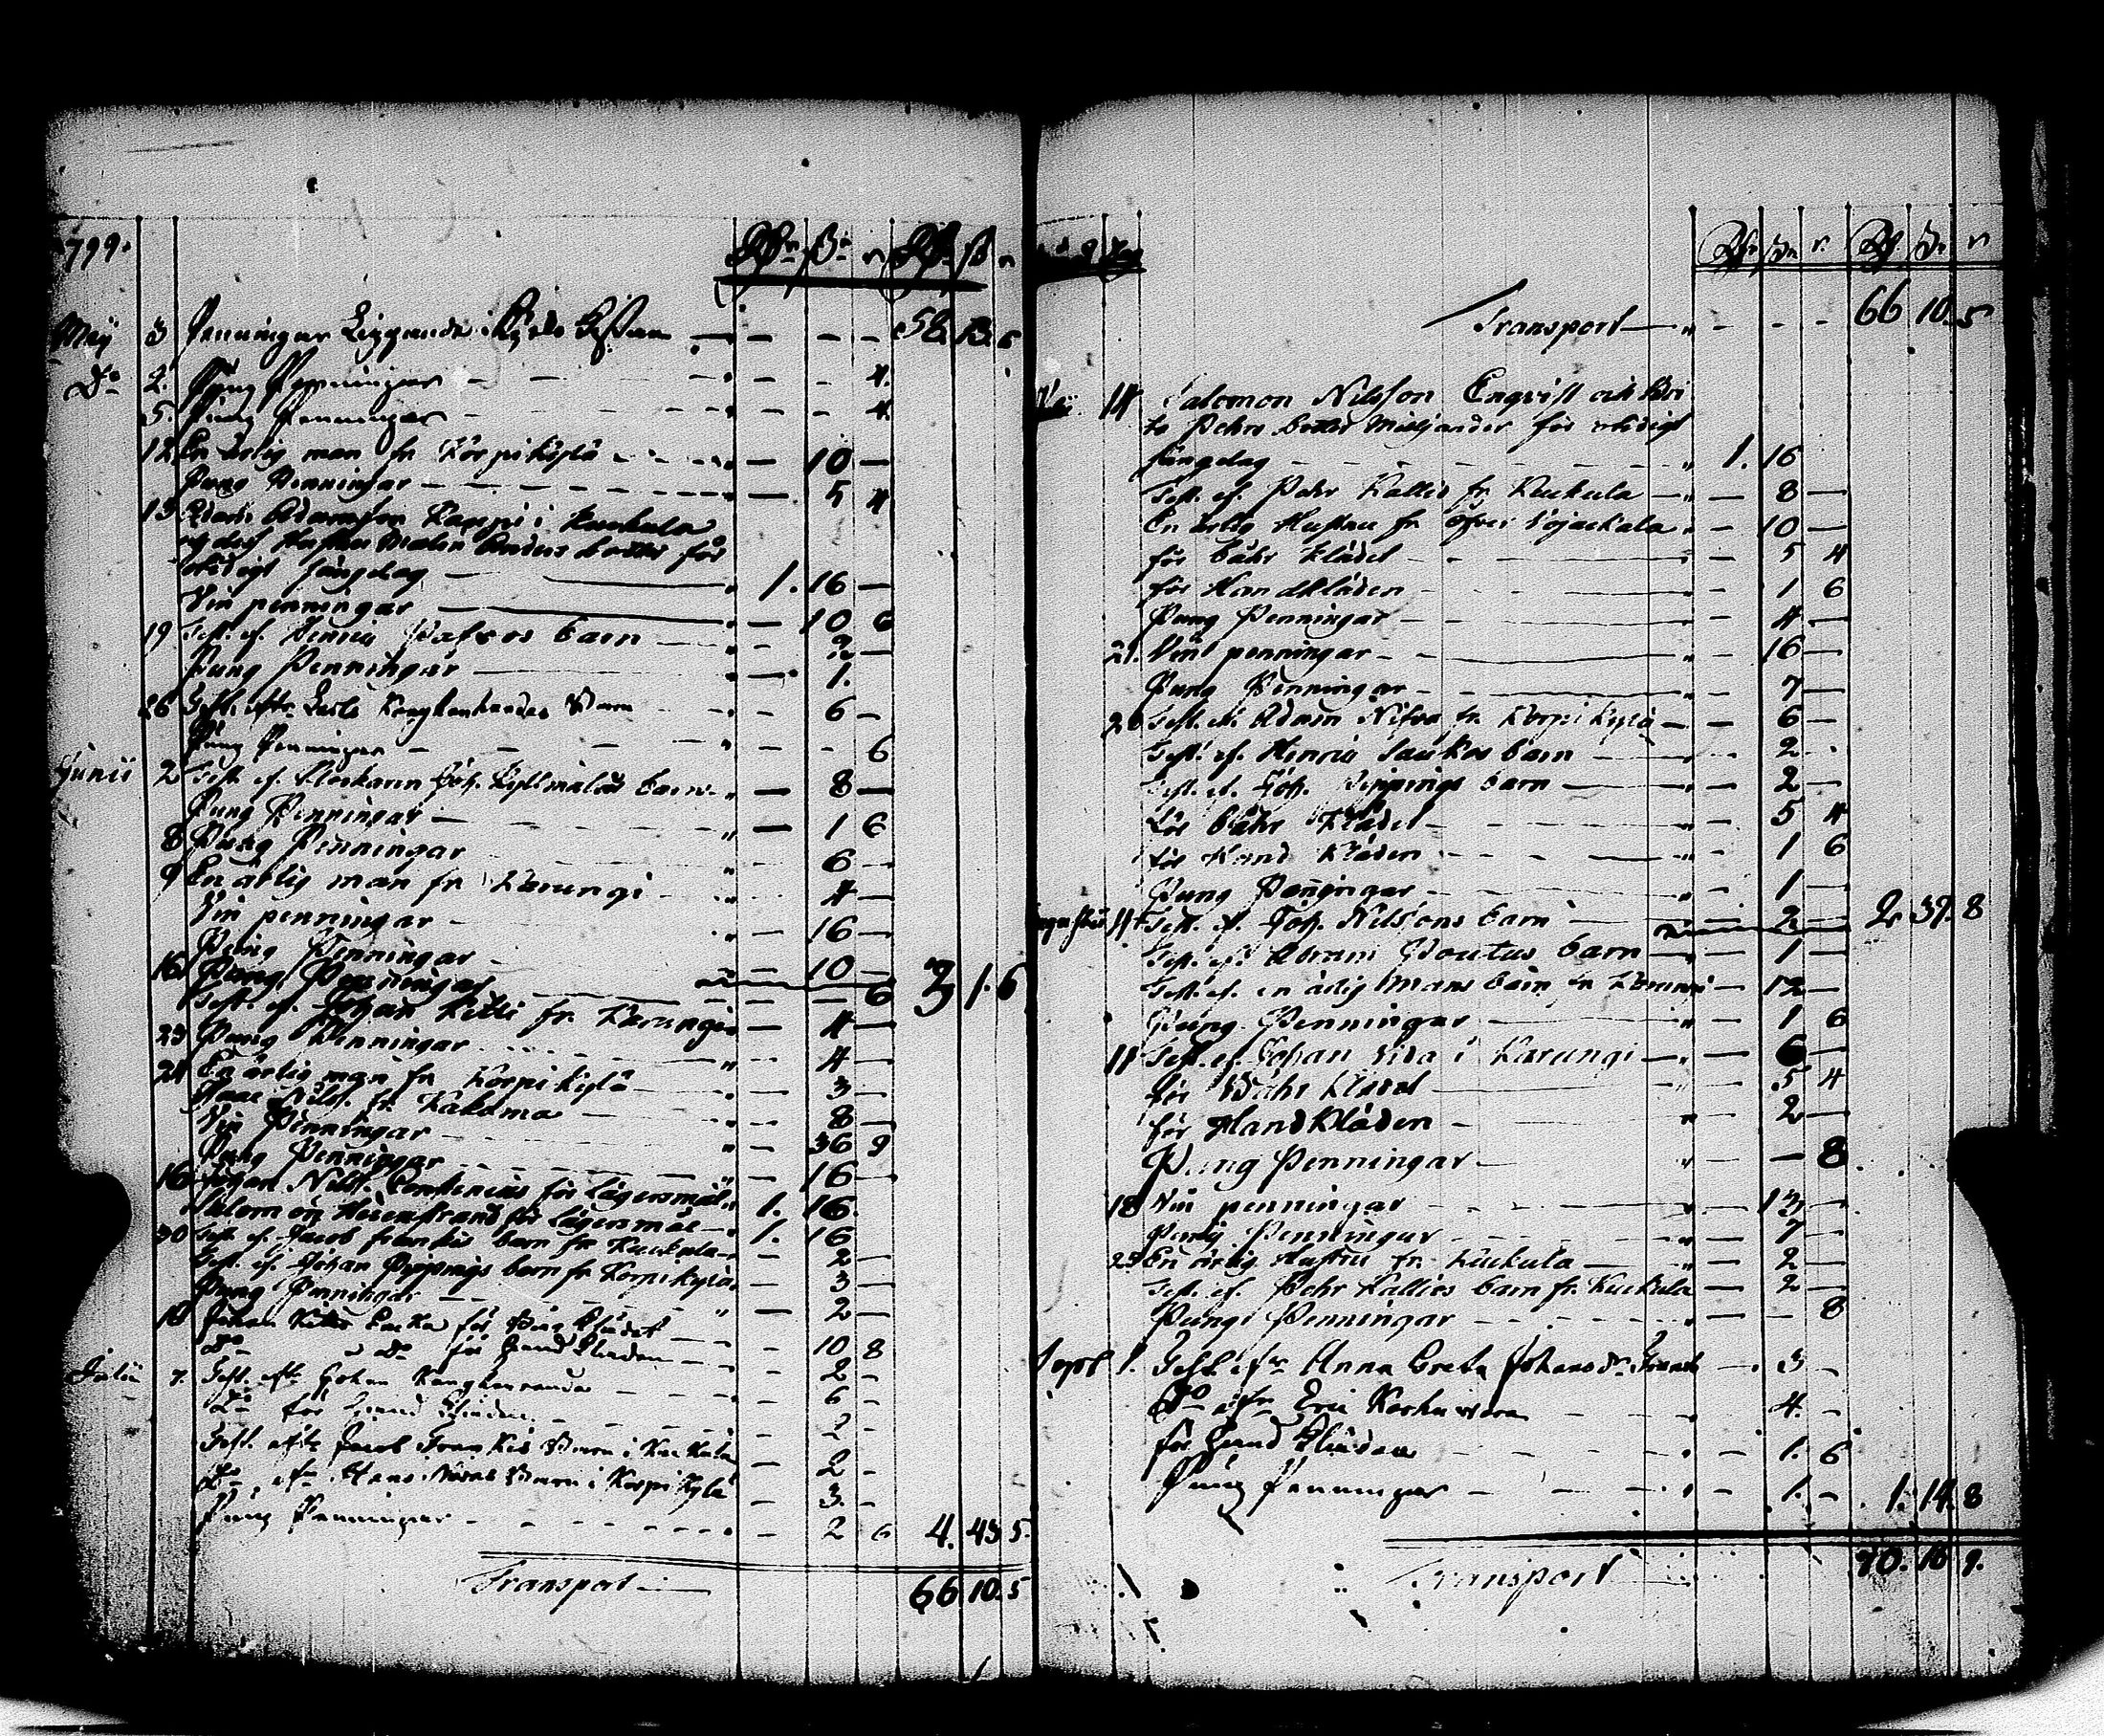 1799.
Rdr ß r Rdr ß r
Maij 3 Penningar Liggande i Kyrko Cassan — — — — 58. 13. 6
Do 2. Pung Penningar — — — 4.
5. Pung Penningar — — — 4.
12. En ärlig man fr Korpikylä — 10 —
Pung Penningar — 5 4
13 Adam Adamsson Kauppi i Kuckula
och dess Hustru Malin Anders dotter för
otidigt sängelag 1. 16 —
Vin penningar — 10 6
19 Test. ef. Henric barn — 2 —
Pung Penningar — 1.
26 Test. eftr Barn — 6 —
Pung Penningar — — 6
Junii 2 Test. ef. Klockaren Joh. Kyllmalas barn — 8 —
Pung Penningar — 1 6
8 Pung Penningar 6 —
9 En ärlig man fr Karungi 4 —
Vin penningar — 16 —
Pung Penningar — 10 —
16 Pung Penningar — — 6 3 1. 6
Test. ef. Johan Kitti fr. Karungi — 4 —
23 Pung Penningar — 4 —
24 En ärlig man fr Korpikylä — 3 —
Isaac Nilss. fr. Kakama — 8 —
Vin Penningar — 36 9
Pung Penningar — 16 —
16 Johan Nilss. för Lägersmål 1. 16.
Salomon för Lägersmål 1. 16
30 Test. ef. Jacob barn fr Kuckula — 2 —
Test. ef. Johan Pippings barn fr Korpikylä — 3 —
Pung Penningar — 2 —
10 Johan Kittis Enka för Bår Klädet — 10 8
Do Do för Hand Kläden — 2 —
Julii 7. Test. eftr Johan — 6 —
Do för Hand Kläden — 2 —
Test. eftr Jacob Barn i Kuckula — 2 —
Do eftr Hans Barn i Korpikylä — 3. —
Pung Penningar — 2 6 4. 43 5.
Transport 66. 10. 5
Rdr ß r. Rdr ß r
Transport — — — 66 10. 5
14 Salomon Nilsson Enqvist och
Pehrs dotter för otidigt
sängelag 1. 16
Test. ef. Pehr Kallio fr. Kuckula — 8 —
En ärlig Hustru fr. öfver Vojackala — 10 —
för båhr klädet — 5 4
för Handkläden — 1 6
Pung Penningar — 4 —
21. Vin penningar 16 —
Pung Penningar 7 —
Test. ef. Adam fr. Korpikylä — 6 —
Test. ef. Henric Saukos barn — 2 ..
Test. ef. Joh. Pippings barn — 2 —
för båhr Klädet 5 4
för Hand Kläden — 1 6
Pung Penningar — 1 —
Augustus 11 Test. ef. Joh. Nilssons barn — 2 — 2 39. 8
Test. ef. Abram barn — 1 —
Test. ef. en ärlig Mans barn fr Karungi — 12 —
Pung Penningar — 1 6
11 Test. ef. Johan i Karungi — 6 —
för Båhr Klädet 5 4
för Hand Kläden — 2 —
Pung Penningar — — 8
18 Vin penningar — 13 —
Pung Penningar — 7 —
25 En ärlig Hustru fr. Kuckula — 2 —
Test. ef. Pehr Kallios barn fr. Kuckula — 2 —
Pung Penningar — — 8
Sept 1. Test. efr Anna Greta Johans dr — 3 —
Do efr Eric — 4. —
för Hand Kläden — 1. 6
Pung Penningar — 1. — 1. 14. 8
Transport 70. 16 9.